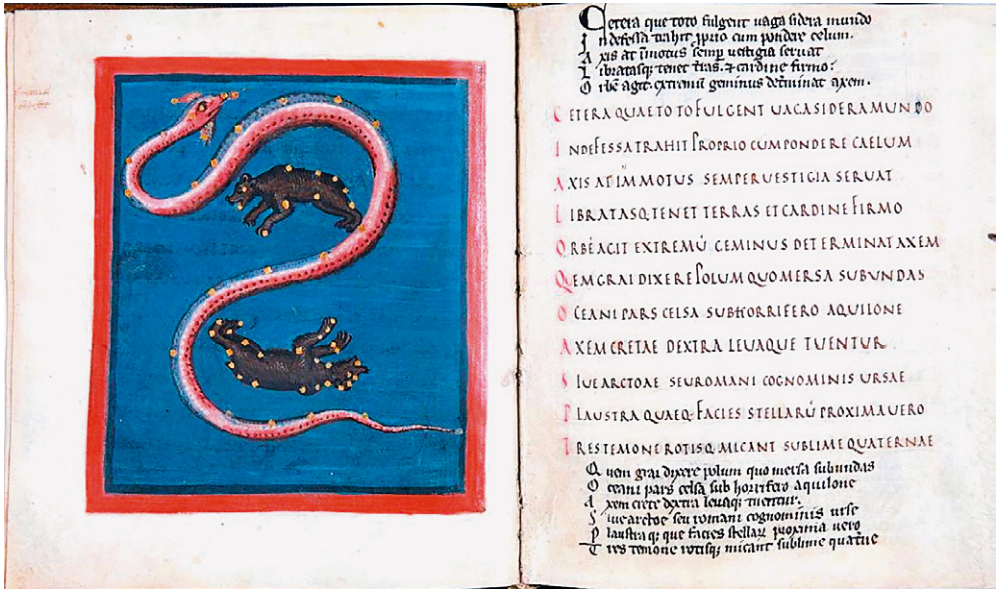 Cetera que toto fulgent vaga sidera mundo
Indefessa trahit pprio cum pondere celum.
Axis at īmotus semp uestigia seruat
Libratasq; tenet t̄ras. ⁊ cardine firmo:
Orbē agit. extremū geminus det̄minat axem.
CETERA QUAE TOTO FULGENT UAGA SIDERA MUNDO
INDEFESSA TRAHIT PROPRIO CUM PONDERE CAELUM
AXIS AT IMMOTUS SEMPER UESTIGIA SERUAT
LIBRATASQ; TENET TERRAS ET CARDINE FIRMO
ORBĒ AGIT EXTREMŪ GEMINUS DETERMINAT AXEM
QUEM GRAI DIXERE POLUM QUO MERSA SUB UNDAS
OCEANI PARS CELSA SUB HORRIFERO AQUILONE
AXEM CRETAE DEXTRA LEUAQUE TUENTUR
SIUE ARCTOAE SEU ROMANI COGNOMINIS URSAE
PLAUSTRA QUAEQ; FACIES STELLARŪ PROXIMA UERO
TRES TEMONE ROTISQ; MICANT SUBLIME QUATERNAE
Quem grai dixere polum quo mersa sub undas
Oceani pars celsa sub horrifero aquilone
Axem crete dextra leuaq; tuentur.
Siue arctoe seu romani cognominis urse
Plaustra q; que facies stellaꝝ proxima uero
Tres temone rotisq; micant sublime quat̄ne